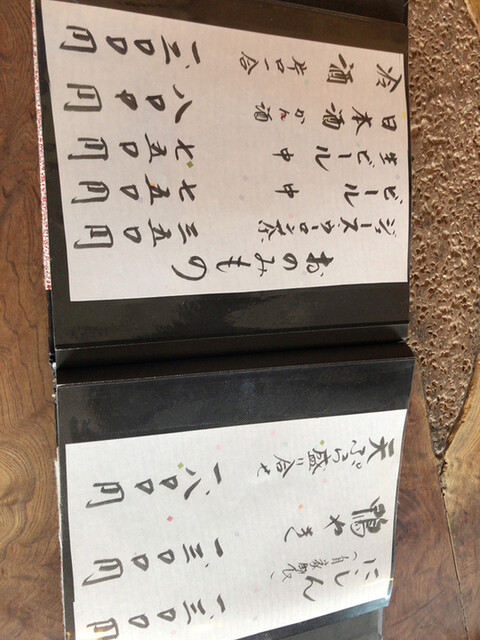 にしん(自家製) 一、三〇〇円
鴨やき 一、三〇〇円
天ぷら盛り合せ 一、八〇〇円
おのみもの
ジュース ウーロン茶 三五〇円
ビール 中 七五〇円
生ビール 中 七五〇円
日本酒 かん酒 八〇〇円
冷酒 辛口一合 一、三〇〇円